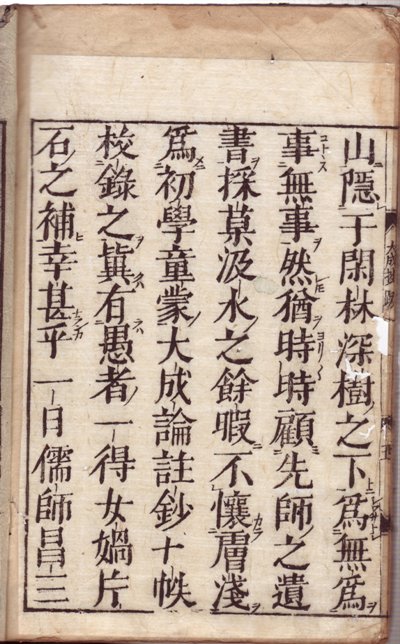 山隱于閑林深樹之下爲無爲
事無事然猶時時顧先師之遺
書採菓汲水之餘暇不懷膚淺
爲初學童蒙大成論註鈔十帙
校錄之冀有愚者一得女媧片
石之補幸甚乎 一日儒師昌三